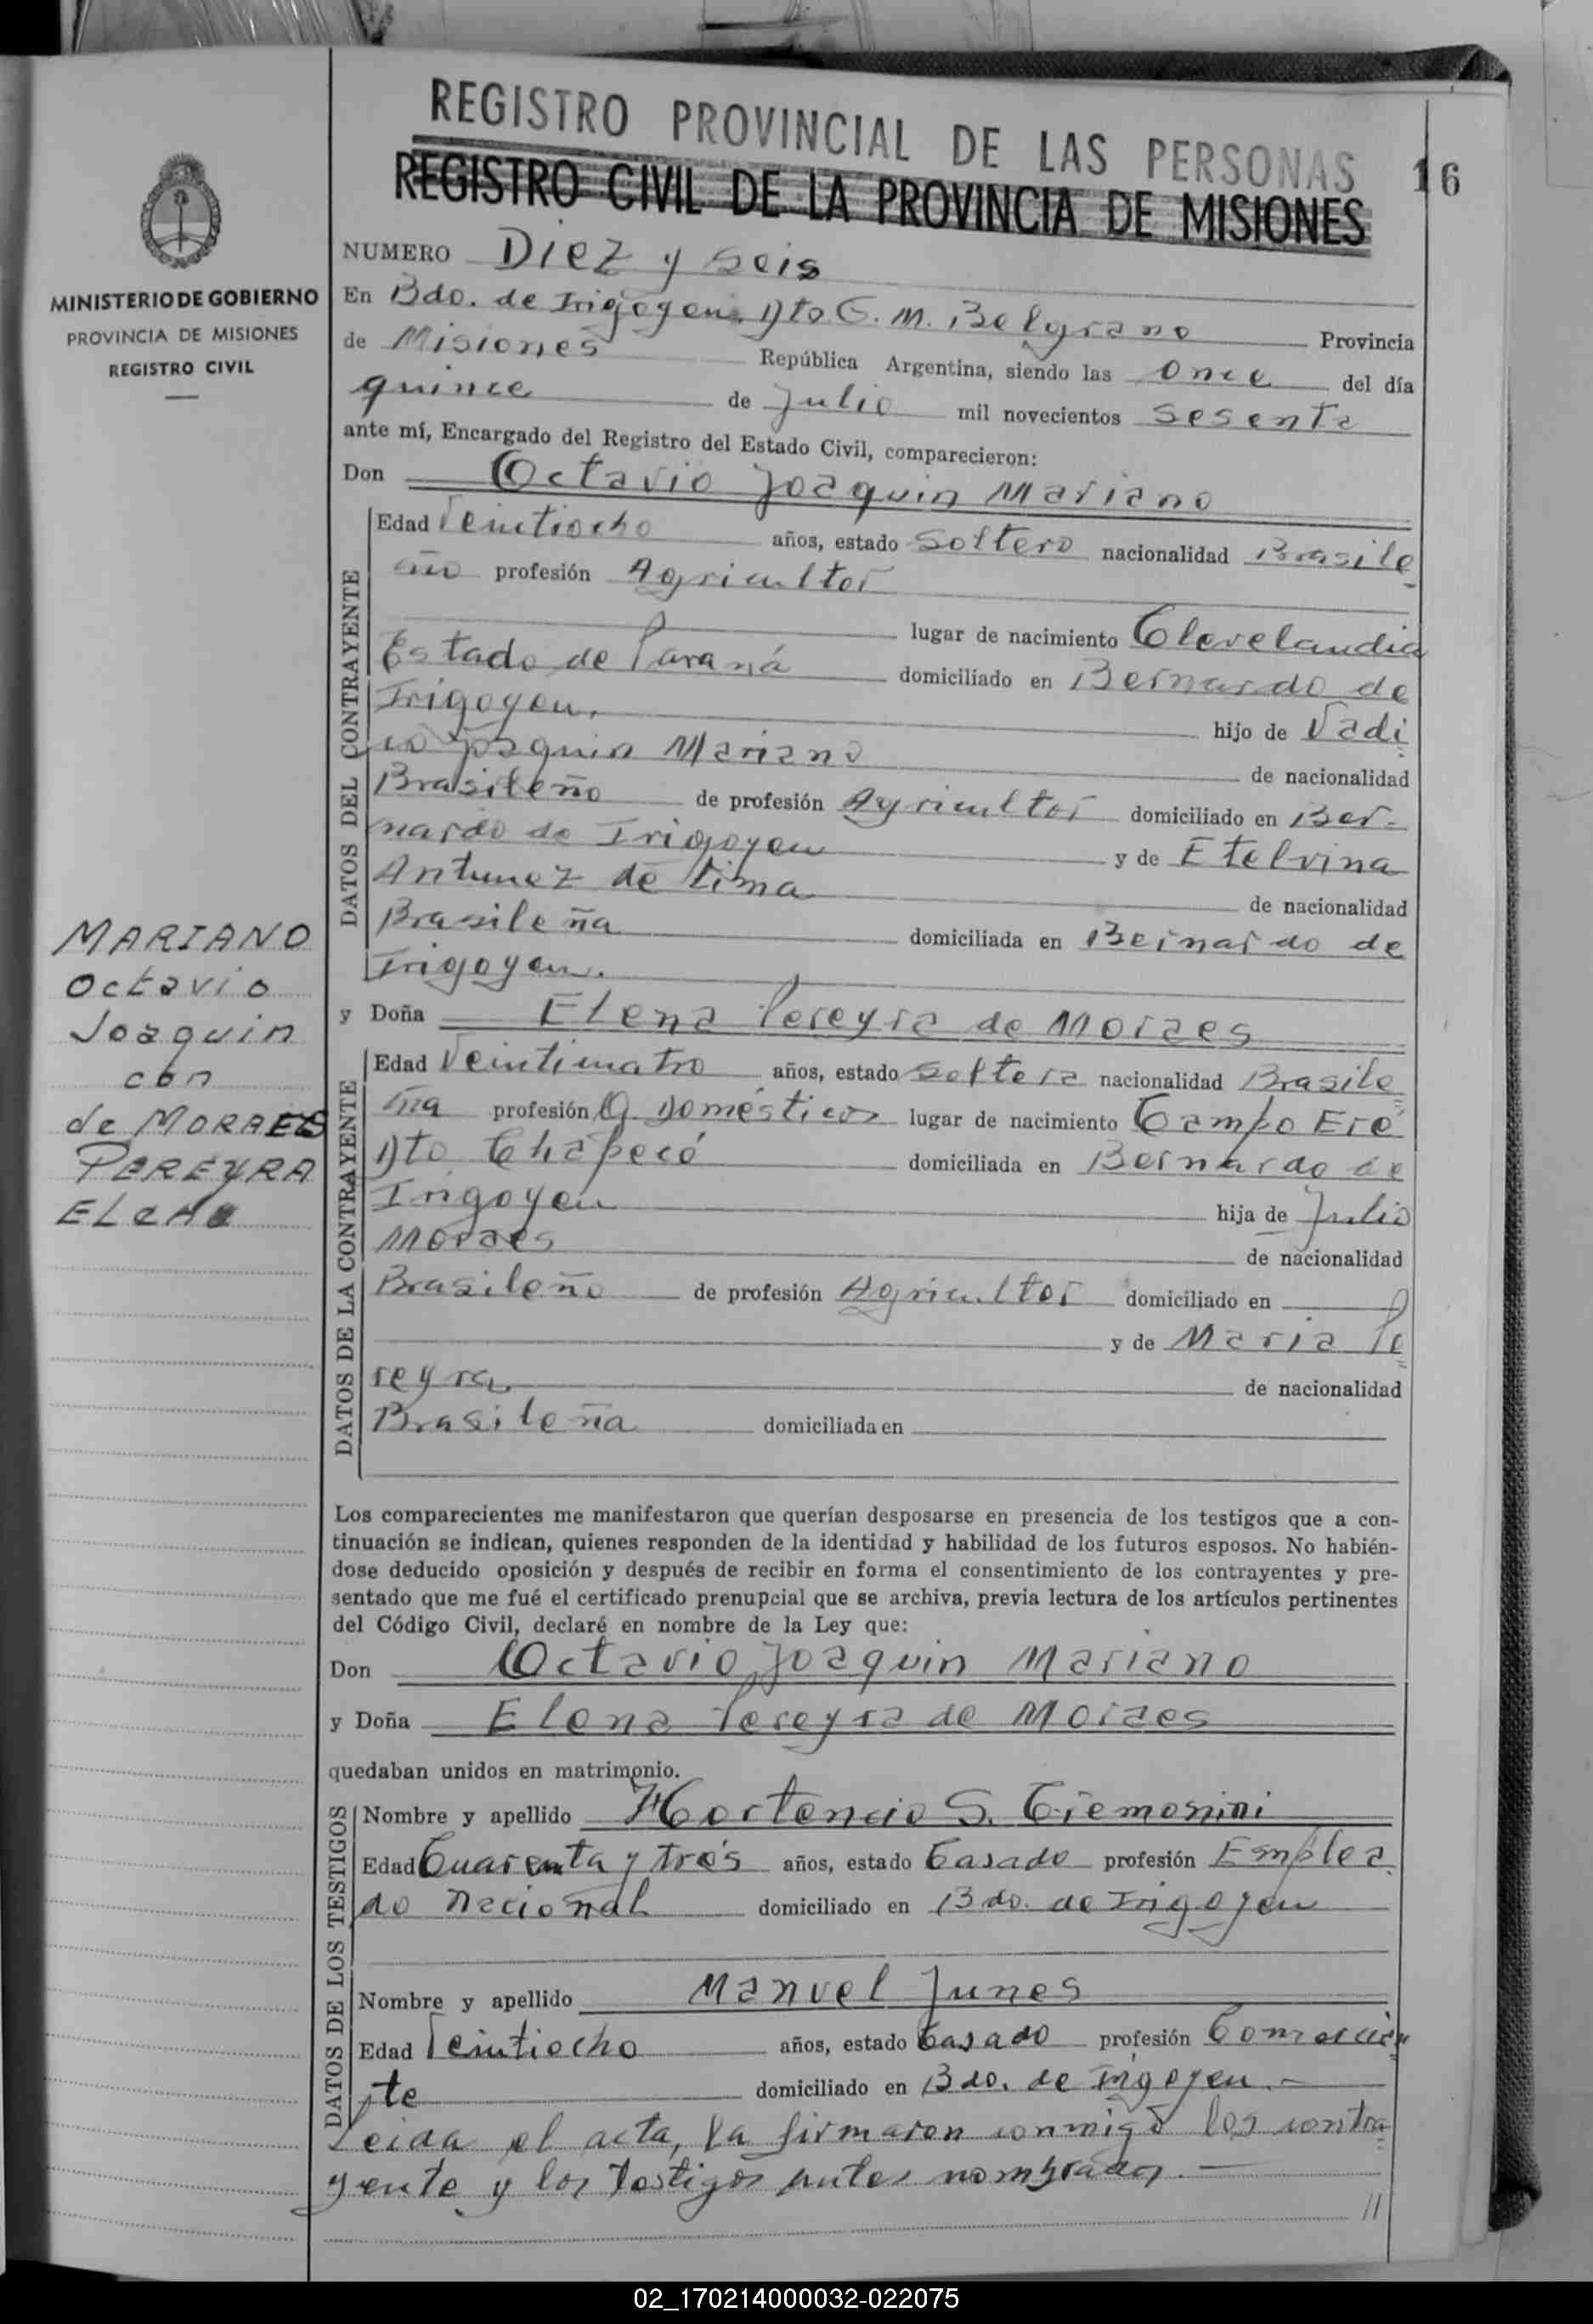 REGISTRO PROVINCIAL DE LAS PERSONAS
REGISTRO CIVIL DE LA PROVINCIA DE MISIONES
16
MINISTERIO DE GOBIERNO
PROVINCIA DE MISIONES
REGISTRO CIVIL
NUMERO Diez y seis
En Bdo. de Irigoyen. Dto G. M. Belgrano Provincia
de Misiones República Argentina, siendo las once del día
quince de Julio mil novecientos sesenta
ante mí, Encargado del Registro del Estado Civil, comparecieron:
Don Octavio Joaquin Mariano
DATOS DEL CONTRAYENTE
Edad Veintiocho años, estado Soltero nacionalidad Brasile
ño profesión Agricultor
lugar de nacimiento Clevelandia
Estado de Paraná domiciliado en Bernardo de
Irigoyen. hijo de Vadi
co Joaquin Mariano de nacionalidad
Brasileño de profesión Agricultor domiciliado en Ber-
nardo de Irigoyen y de Etelvina
Antunez de Lima de nacionalidad
Brasileña domiciliada en Bernardo de
Irigoyen.
MARIANO
Octavio
Joaquin
con
de MORAES
PEREYRA
ELENA
y Doña Elena Pereyra de Moraes
DATOS DE LA CONTRAYENTE
Edad Veinticuatro años, estado soltera nacionalidad Brasile
ña profesión Q. Domésticos lugar de nacimiento Campo Eré
Dto Chapecó domiciliada en Bernardo de
Irigoyen hija de Julio
Moraes de nacionalidad
Brasileño de profesión Agricultor domiciliado en
y de Maria Pe
reyra de nacionalidad
Brasileña domiciliada en
Los comparecientes me manifestaron que querían desposarse en presencia de los testigos que a con-
tinuación se indican, quienes responden de la identidad y habilidad de los futuros esposos. No habién-
dose deducido oposición y después de recibir en forma el consentimiento de los contrayentes y pre-
sentado que me fué el certificado prenupcial que se archiva, previa lectura de los artículos pertinentes
del Código Civil, declaré en nombre de la Ley que:
Don Octavio Joaquin Mariano
y Doña Elena Pereyra de Moraes
quedaban unidos en matrimonio.
DATOS DE LOS TESTIGOS
Nombre y apellido Hortencio S. Cremonini
Edad Cuarenta y tres años, estado Casado profesión Emplea
do Nacional domiciliado en Bdo. de Irigoyen
Nombre y apellido Manuel Junes
Edad Veintiocho años, estado Casado profesión Comercian
te domiciliado en Bdo. de Irigoyen. -
Leida el acta, la firmaron conmigo los contra
yente y los testigos antes nombrados. —
//
02_170214000032-022075